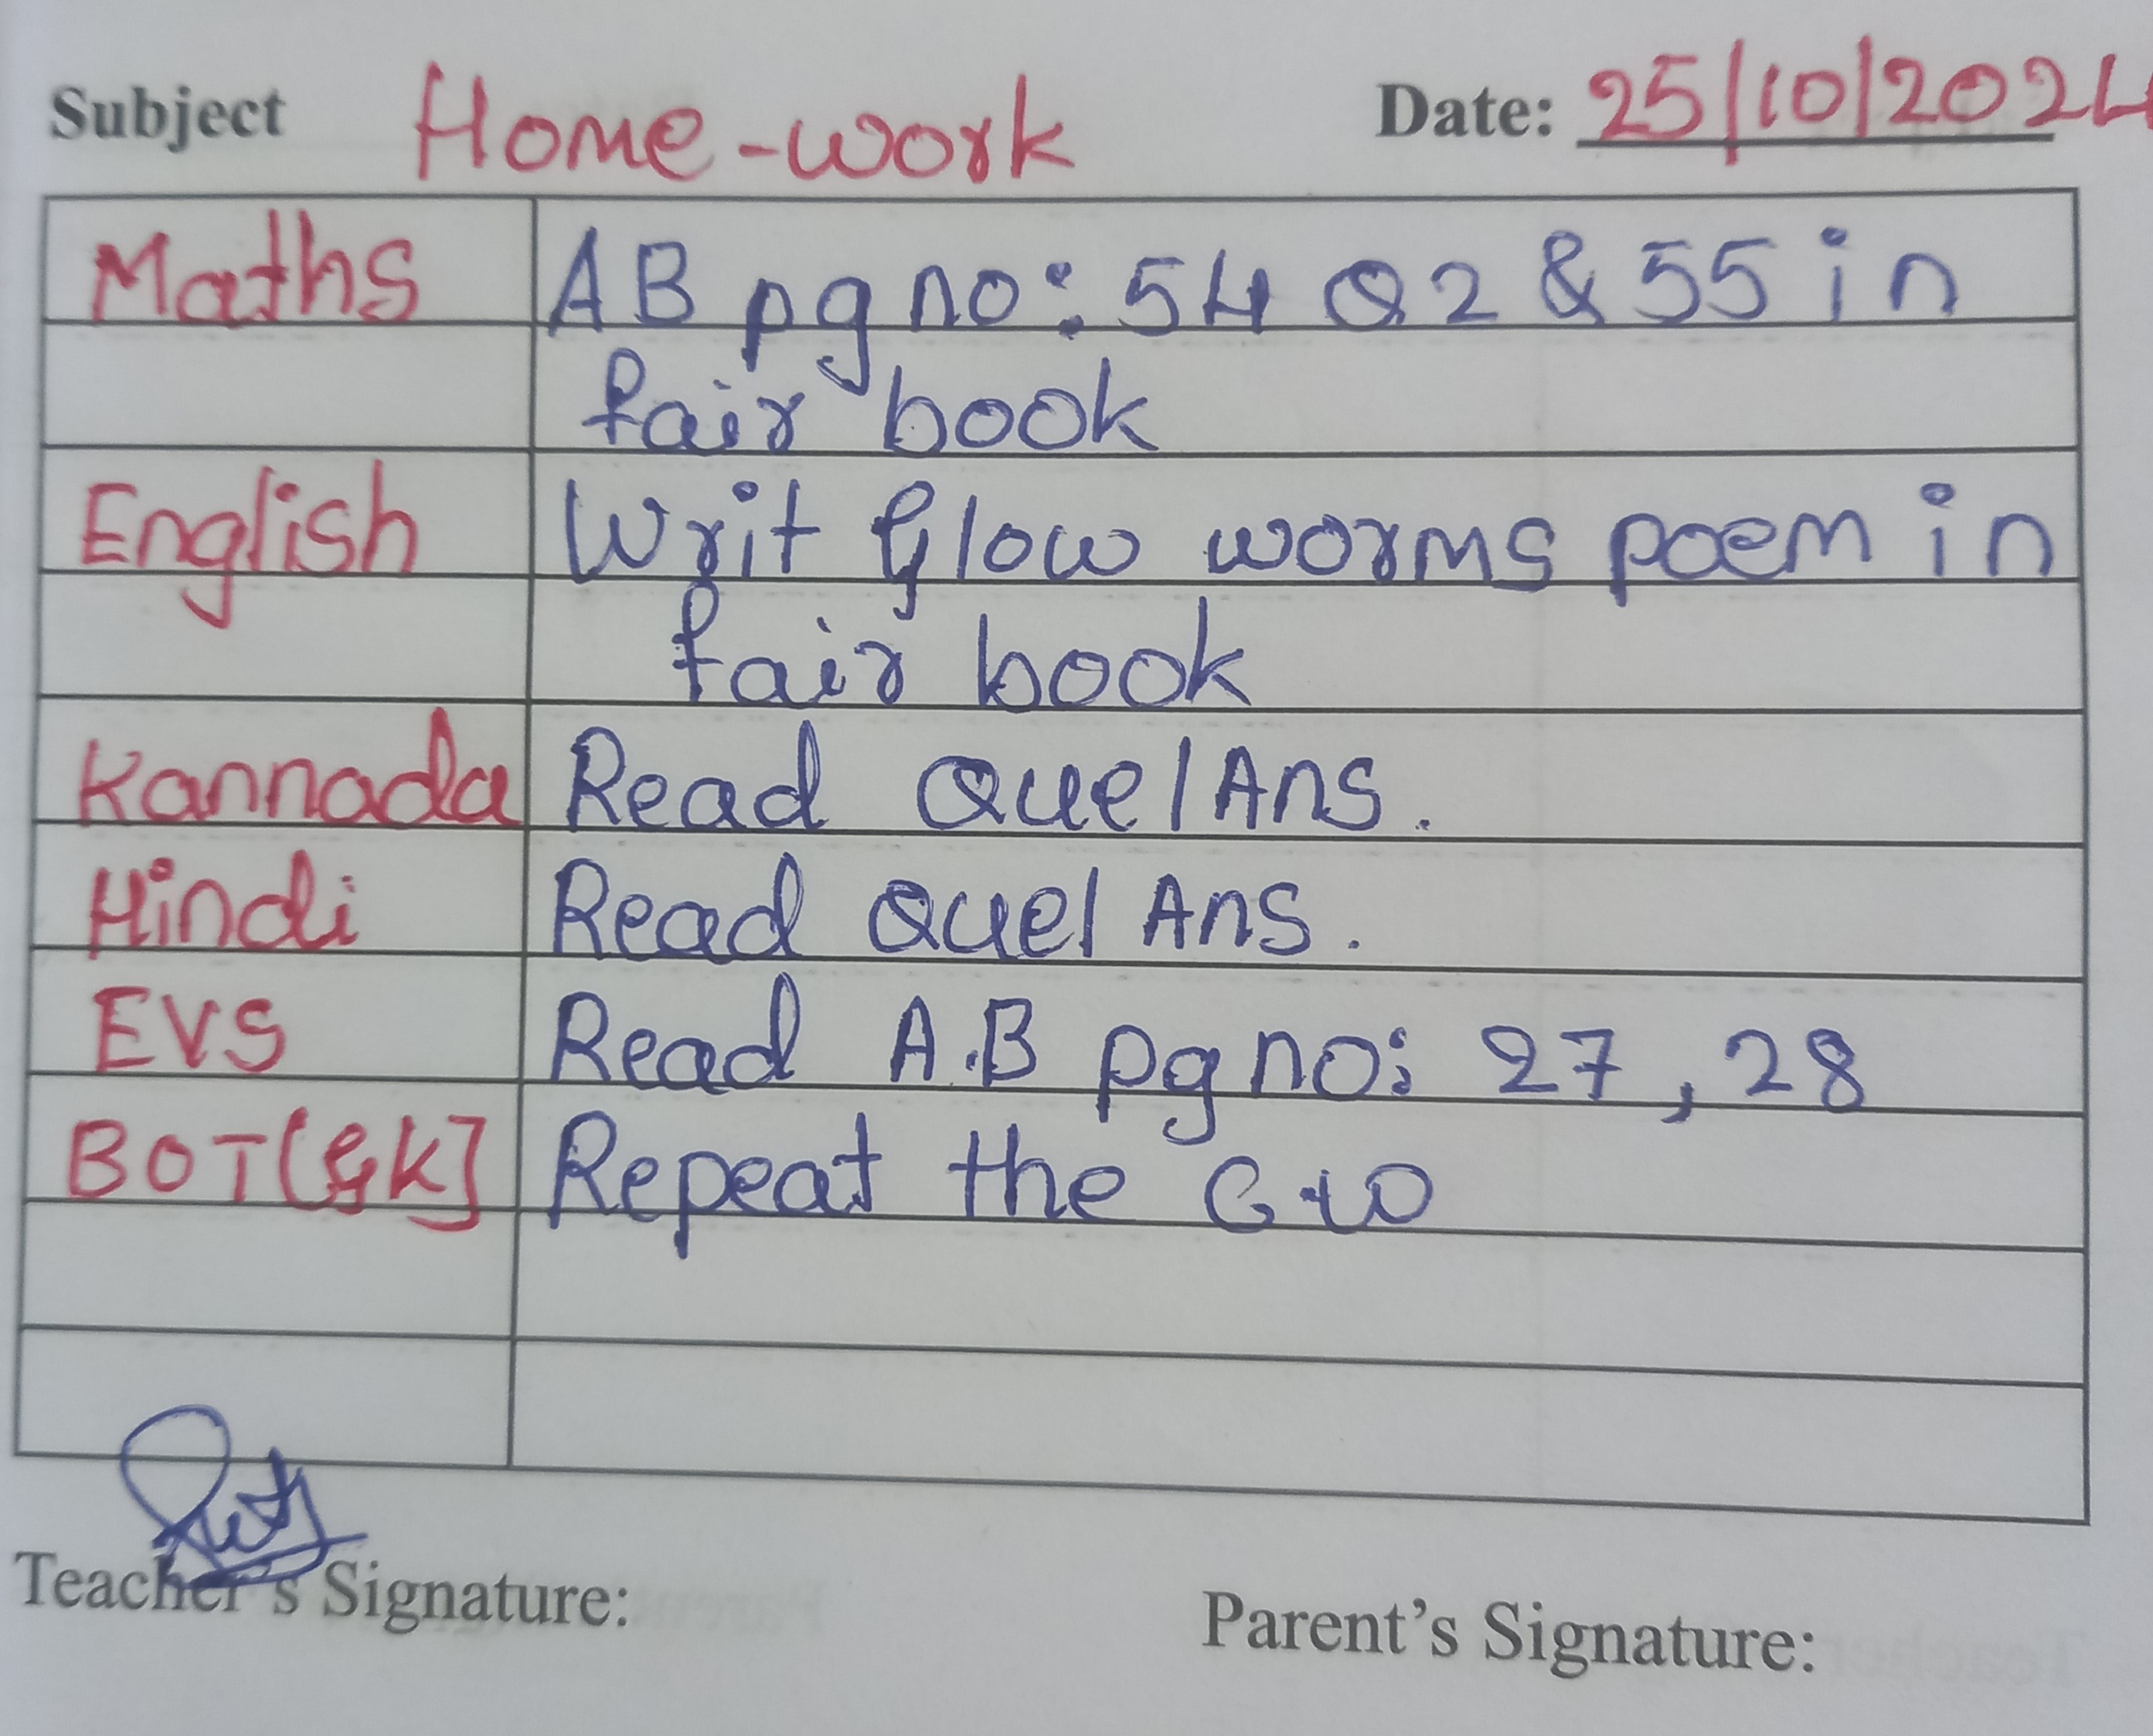 Subject Home-work Date: 25/10/2024
Maths AB pg no: 54 Q2 & 55 in
fair book
English Writ Glow worms poem in
fair book
Kannada Read Que/Ans.
Hindi Read Que/Ans.
EVS Read A.B pg no: 27, 28
BOT[GK] Repeat the C-W
Teacher's Signature:
Parent's Signature: